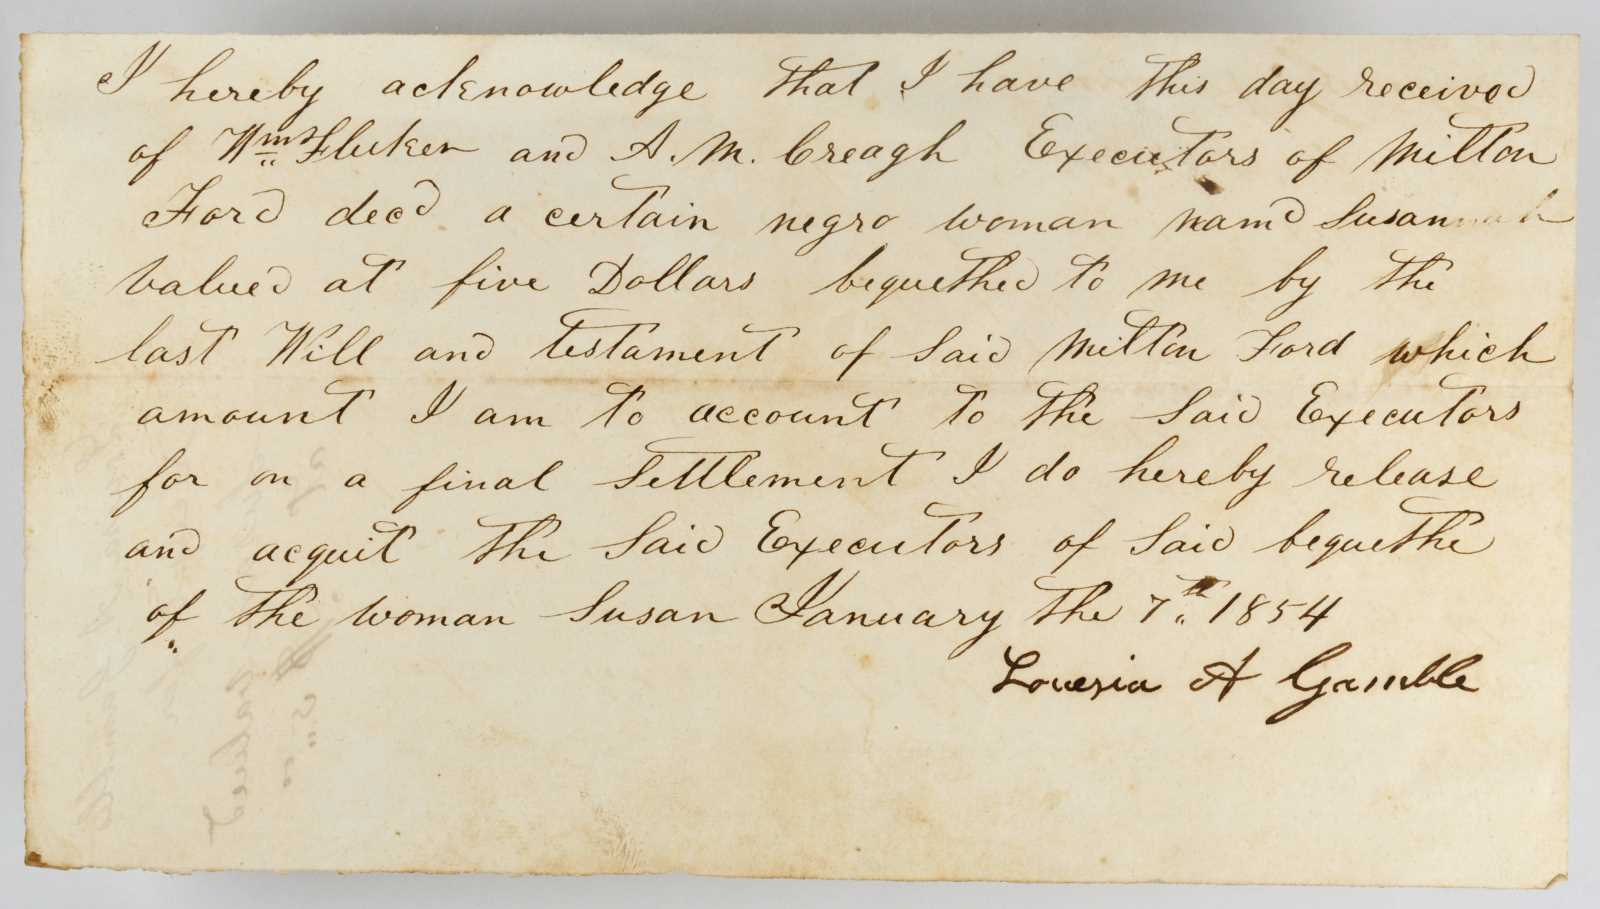 I hereby acknowledge that I have this day received
of Wm Fluker and A. M. Creagh Executors of Milton
Ford decd a certain negro woman namd Susannah
valued at five Dollars bequethed to me by the
last Will and testament of Said Milton Ford which
amount I am to account to the Said Executors
for on a final Settlement I do hereby release
and acquit the Said Executors of Said bequethe
of the woman Susan January the 7th 1854
Louesia A Gamble